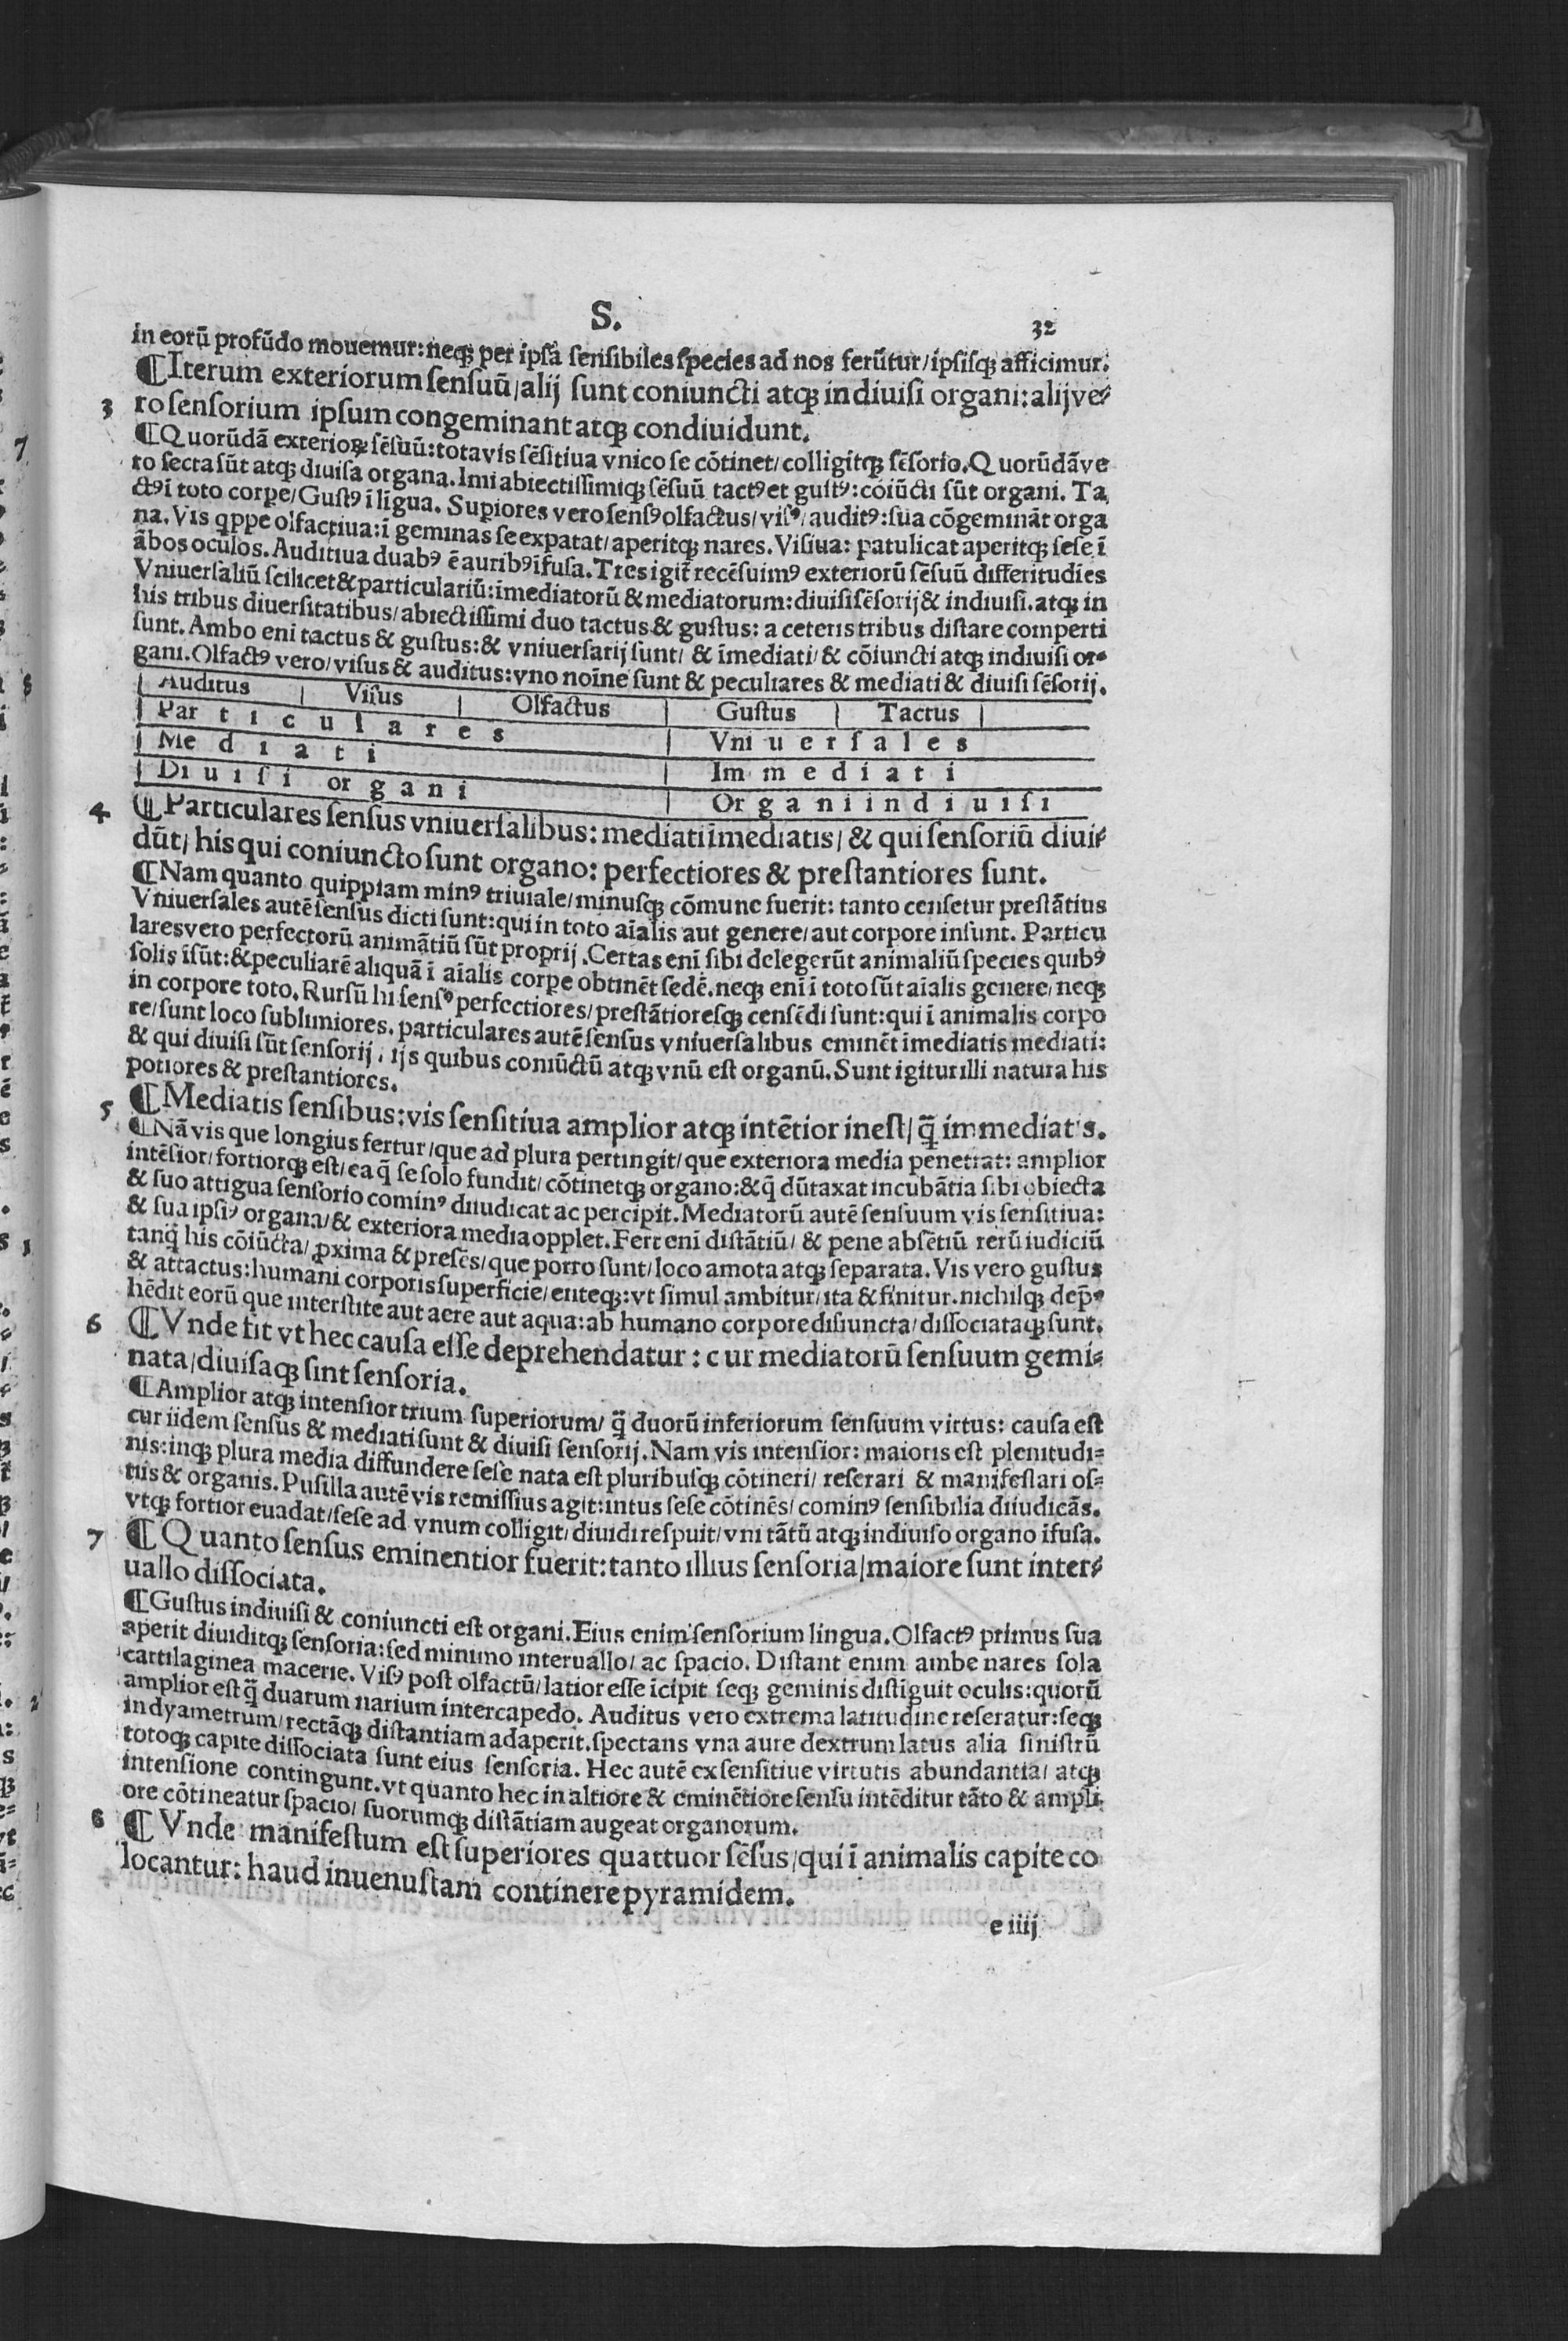 S.
32
in eorū profūdo mouemur: neqꝫ per ipsā sensibiles species ad nos ferūtur/ ipsisqꝫ afficimur.
¶Iterum exteriorum sensuū/ alij sunt coniuncti atqꝫ indiuisi organi: alij ve-
3 ro sensorium ipsum congeminant atqꝫ condiuidunt.
¶Quorūdā exterioꝝ sēsuū: tota vis sēsitiua vnico se cōtinet/ colligitqꝫ sēsorio. Quorūdā ve
ro secta sūt atqꝫ diuisa organa. Imi abiectissimiqꝫ sēsuū tactꝰ et gustꝰ: cōiūcti sūt organi. Ta
ctꝰ ī toto corpe/ Gustꝰ ī ligua. Supiores vero sensꝰ olfactus/ visꝰ/ auditꝰ: sua cōgemināt orga
na. Vis qppe olfactiua: ī geminas se expatat/ aperitqꝫ nares. Visiua: patulicat aperitqꝫ sese ī
ābos oculos. Auditiua duabꝰ ē auribꝰ īfusa. Tres igit̄ recēsuimꝰ exteriorū sēsuū differitudīes
Vniuersaliū scilicet & particulariū: īmediatorū & mediatorum: diuisi sēsorij & indiuisi. atqꝫ in
his tribus diuersitatibus/ abiectissimi duo tactus & gustus: a ceteris tribus distare comperti
sunt. Ambo eni tactus & gustus: & vniuersarij sunt/ & īmediati/ & cōiuncti atqꝫ indiuisi or-
gani. Olfactꝰ vero/ visus & auditus: vno noīne sunt & peculiares & mediati & diuisi sēsorij.
Auditus | Visus | Olfactus | Gustus | Tactus |
Par t i c u l a r e s | Vni u e r s a l e s
Me d i a t i | Im m e d i a t i
Di u i s i or g a n i | Or g a n i i n d i u i s i
4 ¶Particulares sensus vniuersalibus: mediati īmediatis/ & qui sensoriū diui-
dūt/ his qui coniuncto sunt organo: perfectiores & prestantiores sunt.
¶Nam quanto quippiam minꝰ triuiale/ minusqꝫ cōmune fuerit: tanto censetur prestātius
Vniuersales autē sensus dicti sunt: qui in toto aīalis aut genere/ aut corpore insunt. Particu
lares vero perfectorū animātiū sūt proprij. Certas enī sibi delegerūt animaliū species quibꝰ
solis īsūt: & peculiarē aliquā ī aīalis corpe obtinēt sedē. neqꝫ enī ī toto sūt aīalis genere/ neqꝫ
in corpore toto. Rursū hi sensꝰ perfectiores/ prestātioresqꝫ censēdi sunt: qui ī animalis corpo
re/ sunt loco sublimiores. particulares autē sensus vniuersalibus eminēt īmediatis mediati:
& qui diuisi sūt sensorij, ijs quibus coniūctū atqꝫ vnū est organū. Sunt igitur illi natura his
potiores & prestantiores.
5 ¶Mediatis sensibus: vis sensitiua amplior atqꝫ intētior inest/ q̄ immediatis.
¶Nā vis que longius fertur/ que ad plura pertingit/ que exteriora media penetrat: amplior
intēsior/ fortiorqꝫ est/ ea q̄ se solo fundit/ cōtinetqꝫ organo: & q̄ dūtaxat incubātia sibi obiecta
& suo attigua sensorio cominꝰ diiudicat ac percipit. Mediatorū autē sensuum vis sensitiua:
& sua ipsiꝰ organa/ & exteriora media opplet. Fert eni distātiū/ & pene absētiū rerū iudiciū
tanq̄ his cōiūcta/ ꝓxima & presēs/ que porro sunt/ loco amota atqꝫ separata. Vis vero gustus
& attactus: humani corporis superficie/ cuteqꝫ: vt simul ambitur/ ita & finitur. nichilqꝫ dep̄-
hēdit eorū que interstite aut aere aut aqua: ab humano corpore disiuncta/ dissociataqꝫ sunt.
6 ¶Vnde fit vt hec causa esse deprehendatur: cur mediatorū sensuum gemi-
nata/ diuisaqꝫ sint sensoria.
¶Amplior atqꝫ intensior trium superiorum/ q̄ duorū inferiorum sensuum virtus: causa est
cur iidem sensus & mediati sunt & diuisi sensorij. Nam vis intensior: maioris est plenitudi-
nis: inqꝫ plura media diffundere sese nata est pluribusqꝫ cōtineri/ reserari & manifestari os-
tiis & organis. Pusilla autē vis remissius agit: intus sese cōtinēs/ cominꝰ sensibilia diiudicās.
vtqꝫ fortior euadat/ sese ad vnum colligit/ diuidi respuit/ vni tātū atqꝫ indiuiso organo īfusa.
7 ¶Quanto sensus eminentior fuerit: tanto illius sensoria/ maiore sunt inter-
uallo dissociata.
¶Gustus indiuisi & coniuncti est organi. Eius enim sensorium lingua. Olfactꝰ primus sua
aperit diuiditqꝫ sensoria: sed minimo interuallo/ ac spacio. Distant enim ambe nares sola
cartilaginea macerie. Visꝰ post olfactū/ latior esse īcipit seqꝫ geminis distīguit oculis: quorū
amplior est q̄ duarum narium intercapedo. Auditus vero extrema latitudine reseratur: seqꝫ
in dyametrum/ rectāqꝫ distantiam adaperit. spectans vna aure dextrum latus alia sinistrū
totoqꝫ capite dissociata sunt eius sensoria. Hec autē ex sensitiue virtutis abundantia/ atqꝫ
intensione contingunt. vt quanto hec in altiore & eminētiore sensu intēditur tāto & ampli
ore cōtineatur spacio/ suorumqꝫ distātiam augeat organorum.
8 ¶Vnde manifestum est superiores quattuor sēsus/ qui ī animalis capite co
locantur: haud inuenustam continere pyramidem.
e iiij